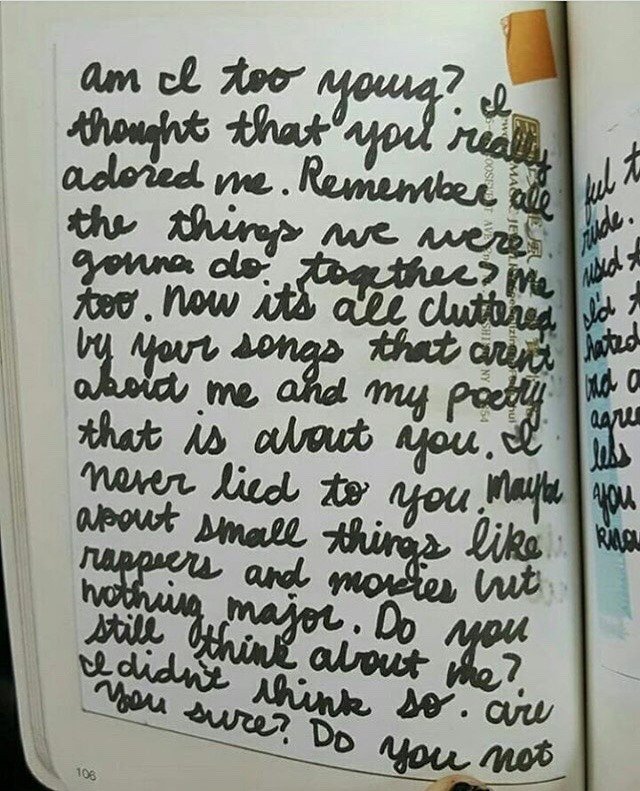 am I too young? I
thought that you really
adored me. Remember all
the things we were
gonna do together? Me
too. Now its all cluttered
by your songs that arent
about me and my poetry
that is about you. I
never lied to you. Maybe
about small things like
rappers and movies but
nothing major. Do you
still think about me?
I didn't think so. are
you sure? Do you not
106
feel t
rude.
used t
hated
and a
agree
less
you
know